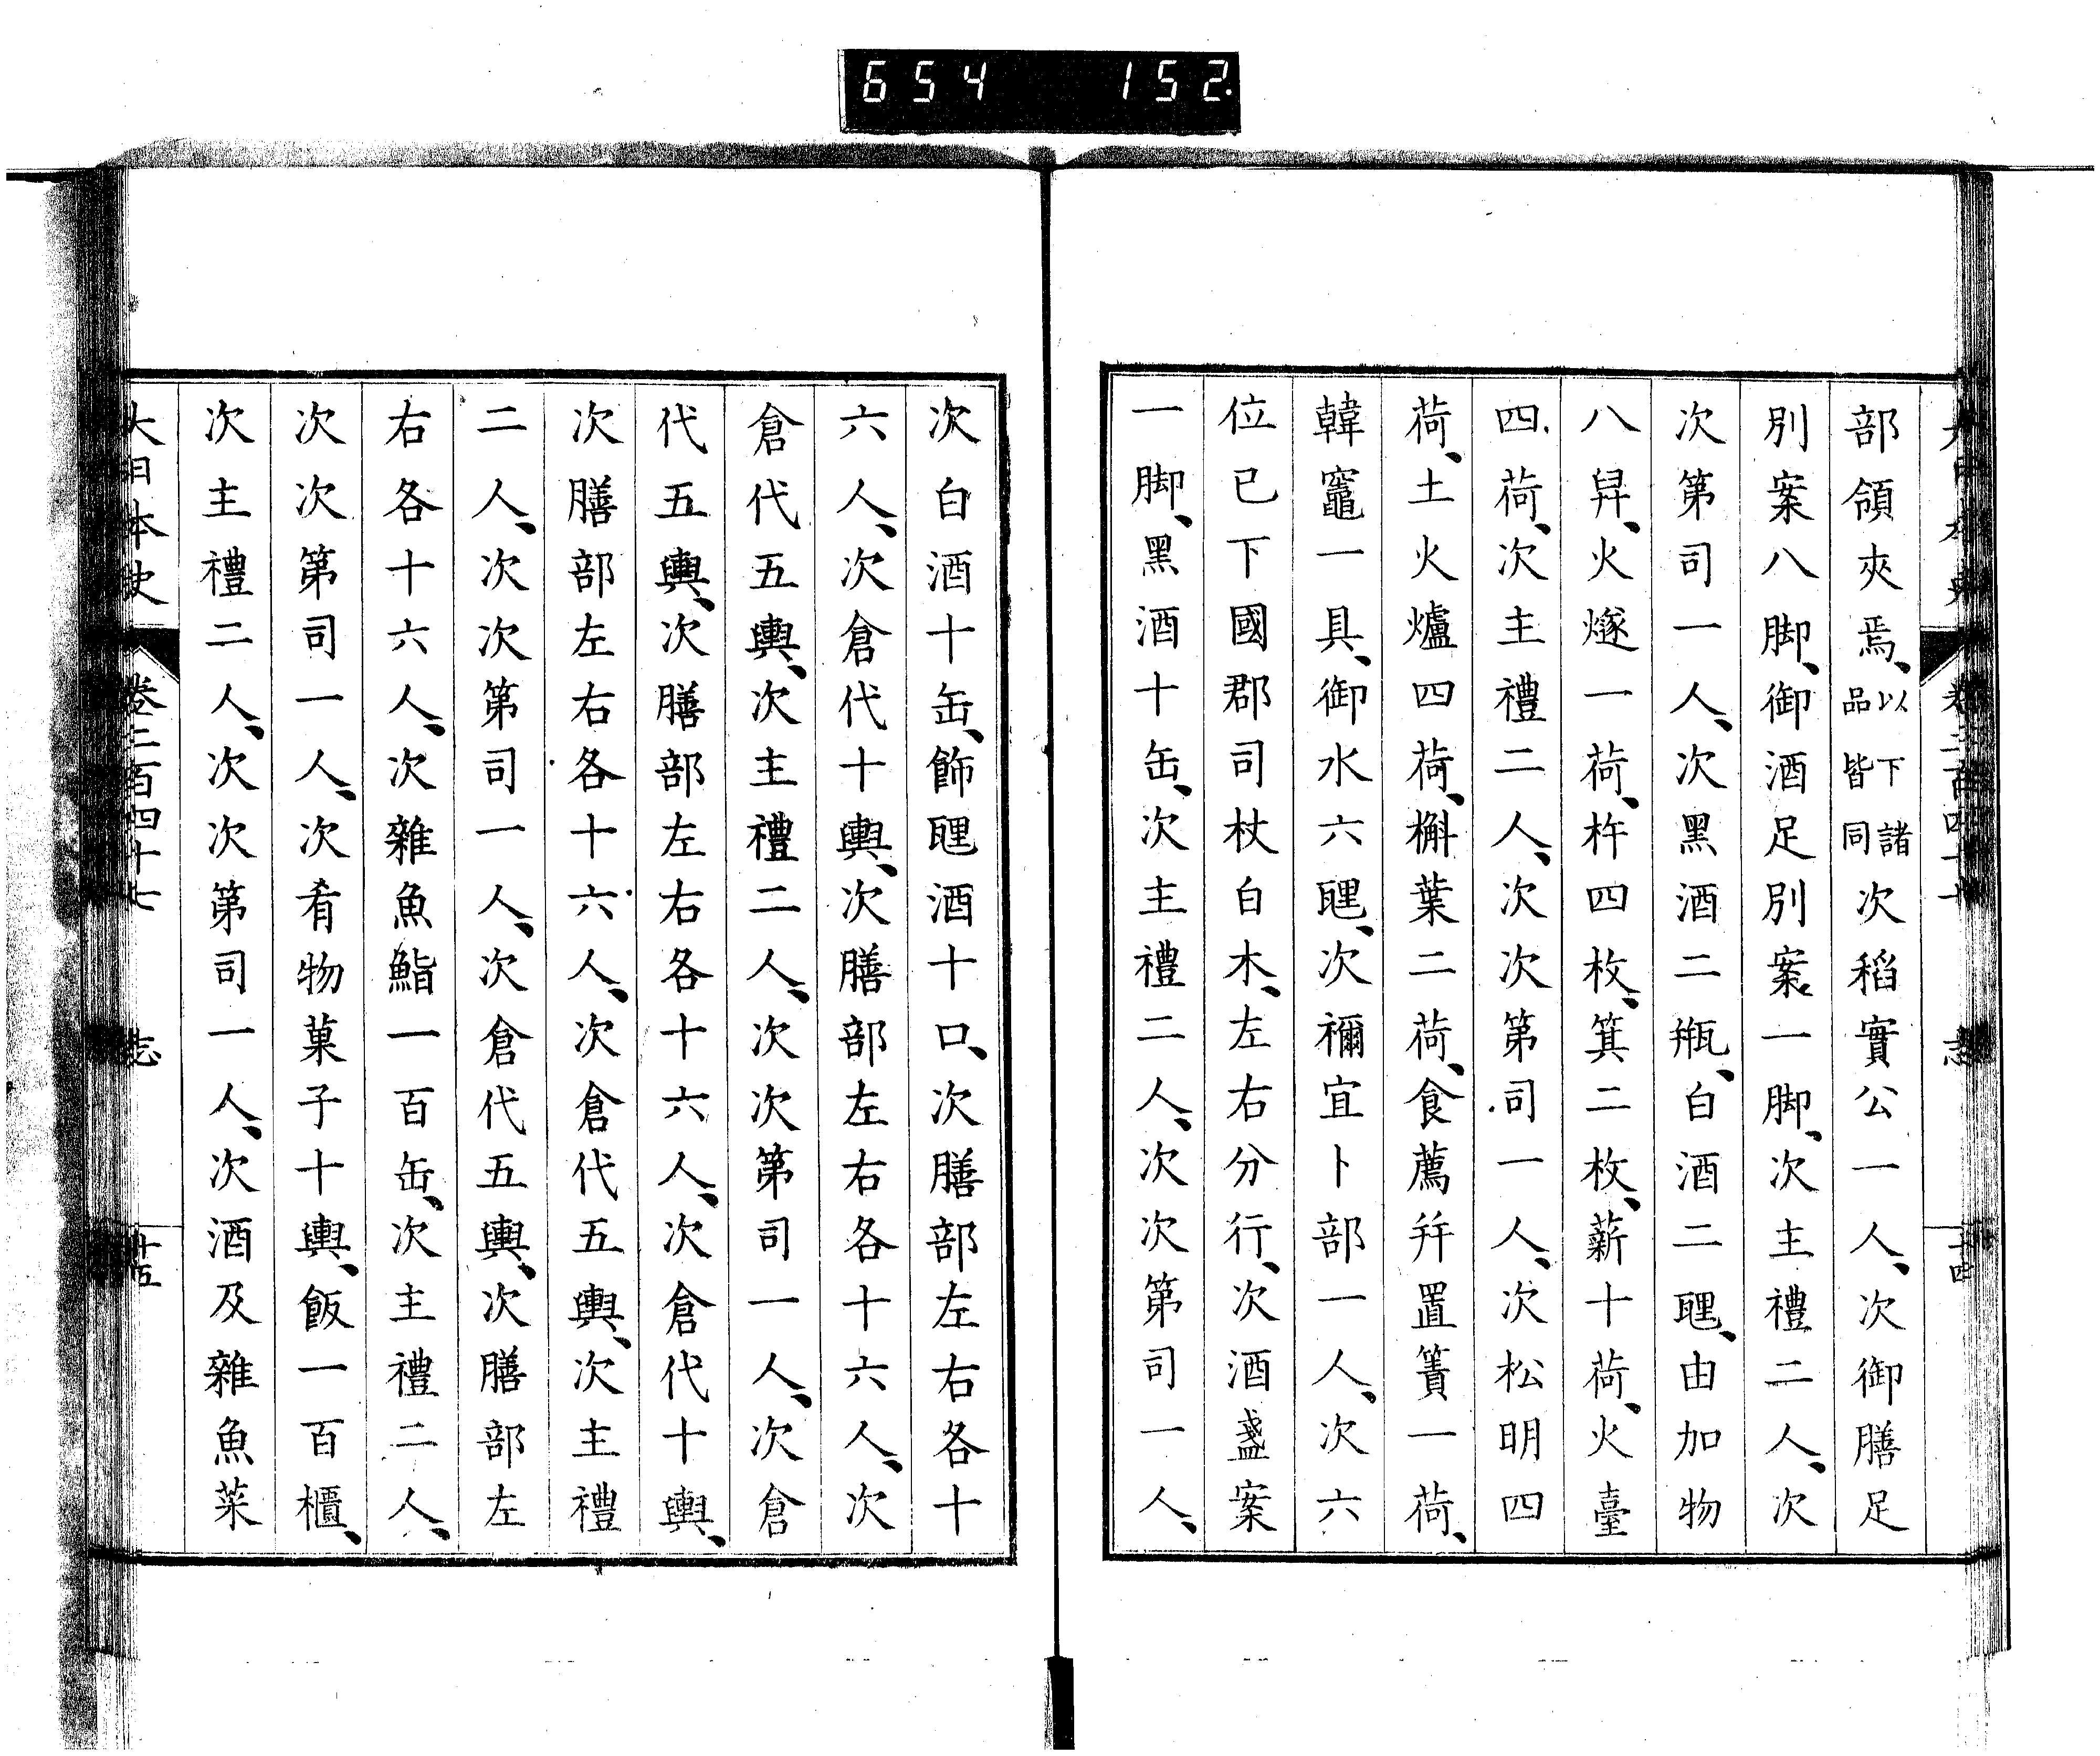 654 152.
部領夾焉、以下諸品皆同次稻實公一人、次御膳足
別案八脚、御酒足別案一脚、次主禮二人、次
次第司一人、次黑酒二瓶、白酒二𤭖、由加物
八舁、火燧一荷、杵四枚、箕二枚、薪十荷、火臺
四荷、次主禮二人、次次第司一人、次松明四
荷、土火爐四荷、槲葉二荷、食薦幷置簀一荷、
韓竈一具、御水六𤭖、次禰宜卜部一人、次六
位已下國郡司杖白木、左右分行、次酒盞案
一脚、黑酒十缶、次主禮二人、次次第司一人、
次白酒十缶、飾𤭖酒十口、次膳部左右各十
六人、次倉代十輿、次膳部左右各十六人、次
倉代五輿、次主禮二人、次次第司一人、次倉
代五輿、次膳部左右各十六人、次倉代十輿、
次膳部左右各十六人、次倉代五輿、次主禮
二人、次次第司一人、次倉代五輿、次膳部左
右各十六人、次雜魚鮨一百缶、次主禮二人、
次次第司一人、次肴物菓子十輿、飯一百櫃、
次主禮二人、次次第司一人、次酒及雜魚菜
大日本史 卷二百四十七 志 十五